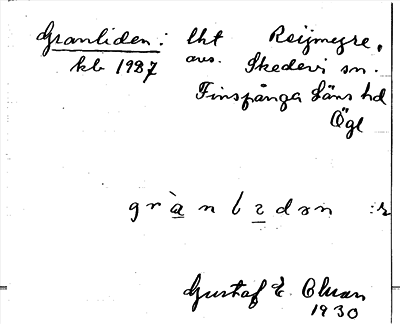 Granliden: lht Reijmyre,
kb 1987 avs. Skedevi sn.
Finspånga läns hd
Ögl
Gustaf E.
1930